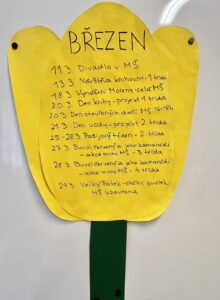 BŘEZEN
11.3. Divadlo v MŠ
13.3. Návštěva knihovny-1.třída
18.3 Vynášení Moreny-celá MŠ
20.3 Den knihy-projekt 1.třída
20.3 Den otevřených dveří MŠ
21.3 Den vody-projekt 2.třída
25.-28.3 týden - 2.třída
27.3 Buvol červený a jeho kamarádi
- akce mimo MŠ - 3.třída
28.3 Buvol červený a jeho kamarádi
- akce mimo MŠ - 4.třída
29.3 Velký Pátek - státní svátek
MŠ uzavřena